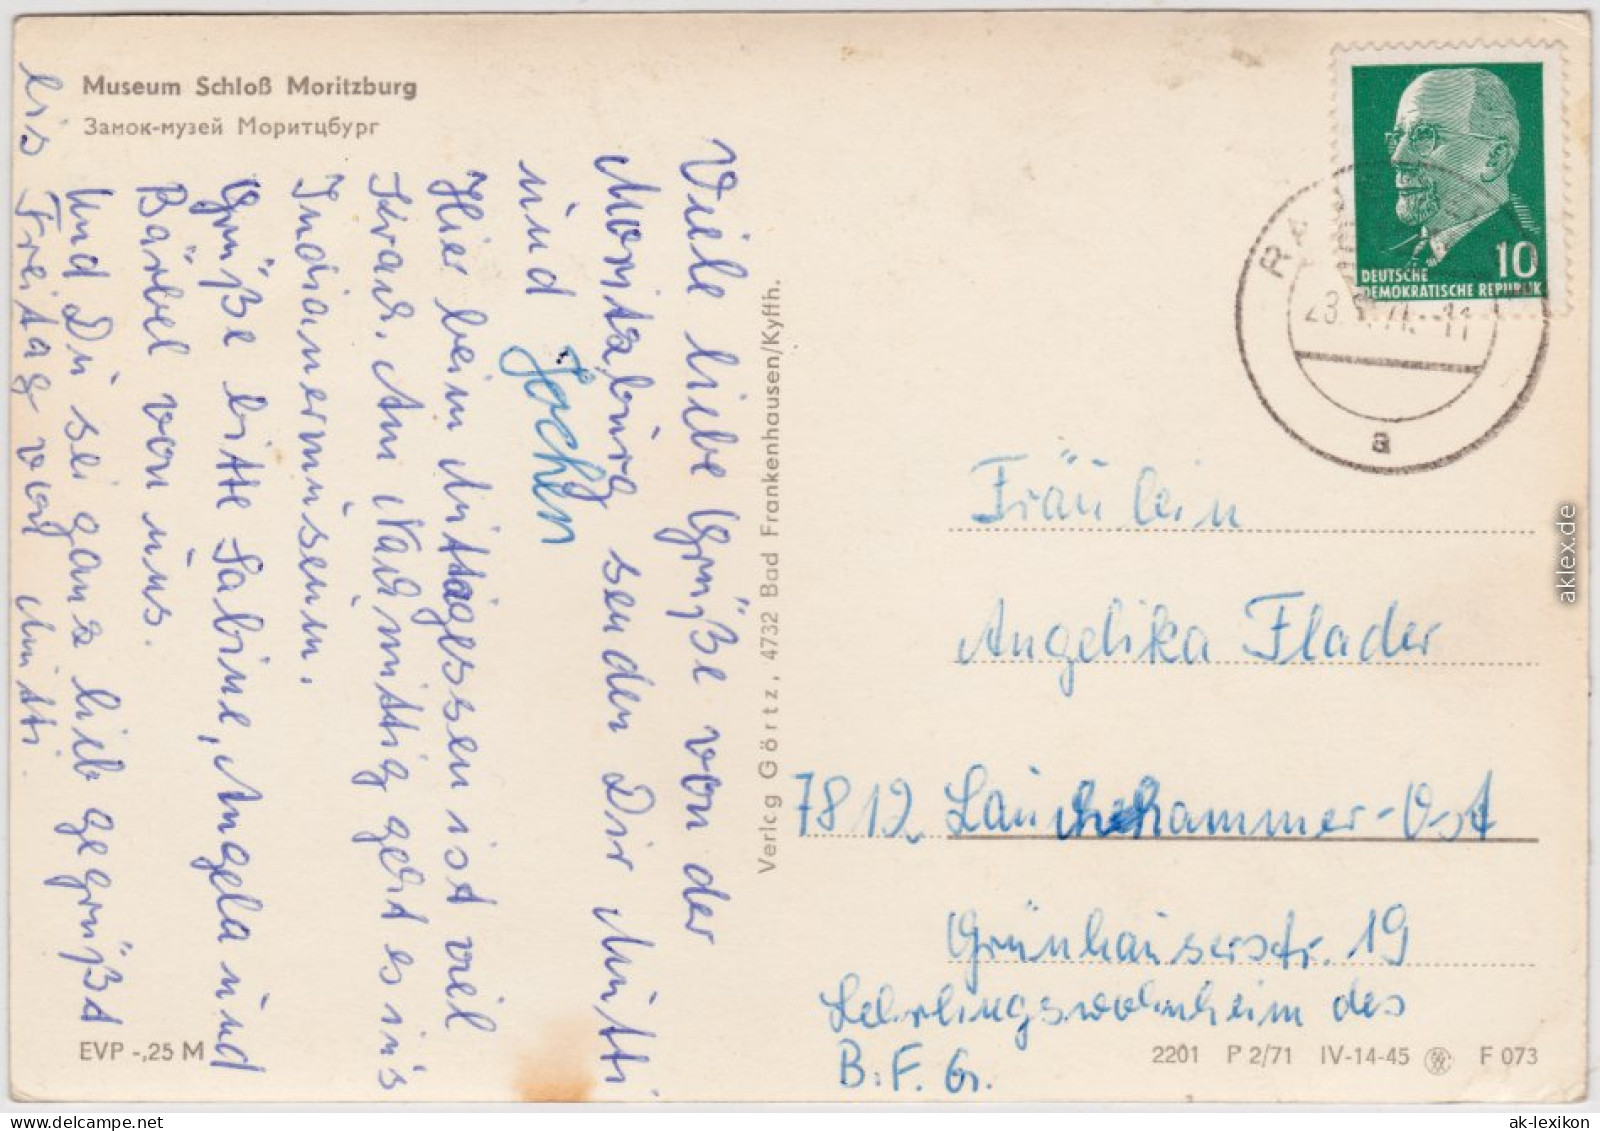 Museum Schloß Moritzburg
Замок-музей Моритцбург
Viele liebe Grüße von der
Moritzburg senden Dir Mutti
und Jochen
Hier beim Mittagessen ist viel
Krach. Am Nachmittag geht es in's
Indianermuseum.
Grüße bitte Sabine, Angela und
Bärbel von uns.
Und Du sei ganz lieb gegrüßt
bis Freitag von Mutti.
Verlag Görtz, 4732 Bad Frankenhausen/Kyffh.
10
DEUTSCHE
DEMOKRATISCHE REPUBLIK
RA
23. 71.-11
a
Fräulein
Angelika Flader
7812 Lauchhammer-Ost
Grünhauserstr. 19
Lehrlingswohnheim des
B.F.G.
EVP -,25 M
2201 P 2/71 IV-14-45 F 073
aklex.de
ak-lexikon